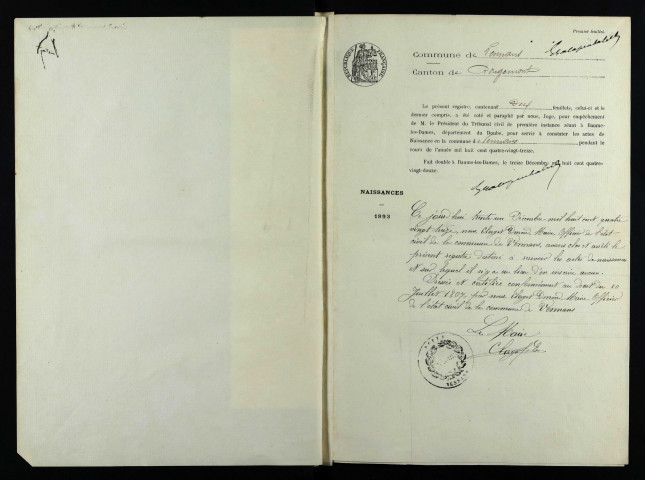 Premier feuillet.
RÉPUBLIQUE FRANÇAISE
Commune de Vennans
Canton de Rougemont
Le présent registre, contenant feuillets, celui-ci et le
dernier compris, a été coté et paraphé par nous, Juge, pour empêchement
de M. le Président du Tribunal civil de première instance séant à Baume-
les-Dames, département du Doubs, pour servir à constater les actes de
Naissance en la commune d pendant le
cours de l'année mil huit cent quatre-vingt-treize.
Fait double à Baume-les-Dames, le treize Décembre mil huit cent quatre-
vingt-douze.
NAISSANCES
1893
Ce jourd'hui trente un Décembre mil huit cent quatre
vingt treize, nous Maire, Officier de l'état
civil de la commune de Vennans, avons clos et arrêté le
présent registre destiné à recevoir les actes de naissance
et sur lequel il n'y a eu lieu d'en inscrire aucun.
conformément au décret du 20
Juillet 1807, par nous Maire, Officier
de l'état civil de la commune de Vennans
Le Maire